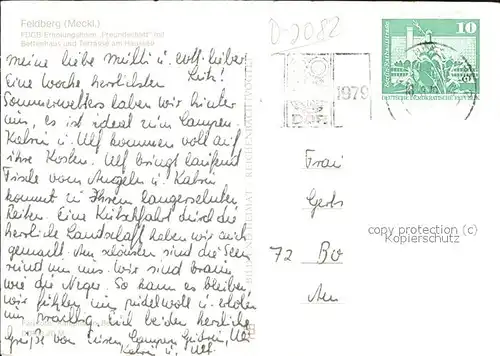 Feldberg (Meckl.)
FDGB-Erholungsheim „Freundschaft" mit
Bettenhaus und Terrasse am Haussee
D-2082
10
DEUTSCHE DEMOKRATISCHE REPUBLIK
1979
meine liebe Mutti u. lieber
Lutz!
Eine Woche herrlichsten
Sommerwetters haben wir hinter
uns, es ist ideal zum Campen.
Katrin u. Ulf kommen voll auf
ihre Kosten. Ulf bringt laufend
Fische vom Angeln u. Katrin
kommt zu Ihrem langersehnten
Reiten. Eine Kutschfahrt durch die
herrliche Landschaft haben wir auch
gemacht. Am schönsten sind die Seen
rund um uns. Wir sind braun
wie die Neger. So kann es bleiben,
wir fühlen uns pudelwohl u. erholen
uns prächtig. Euch beiden herzliche
Grüße von Euren Campern
Katrin u. Ulf
Frau
Gerh
72 Bo
Am
copy protection (c)
Kopierschutz